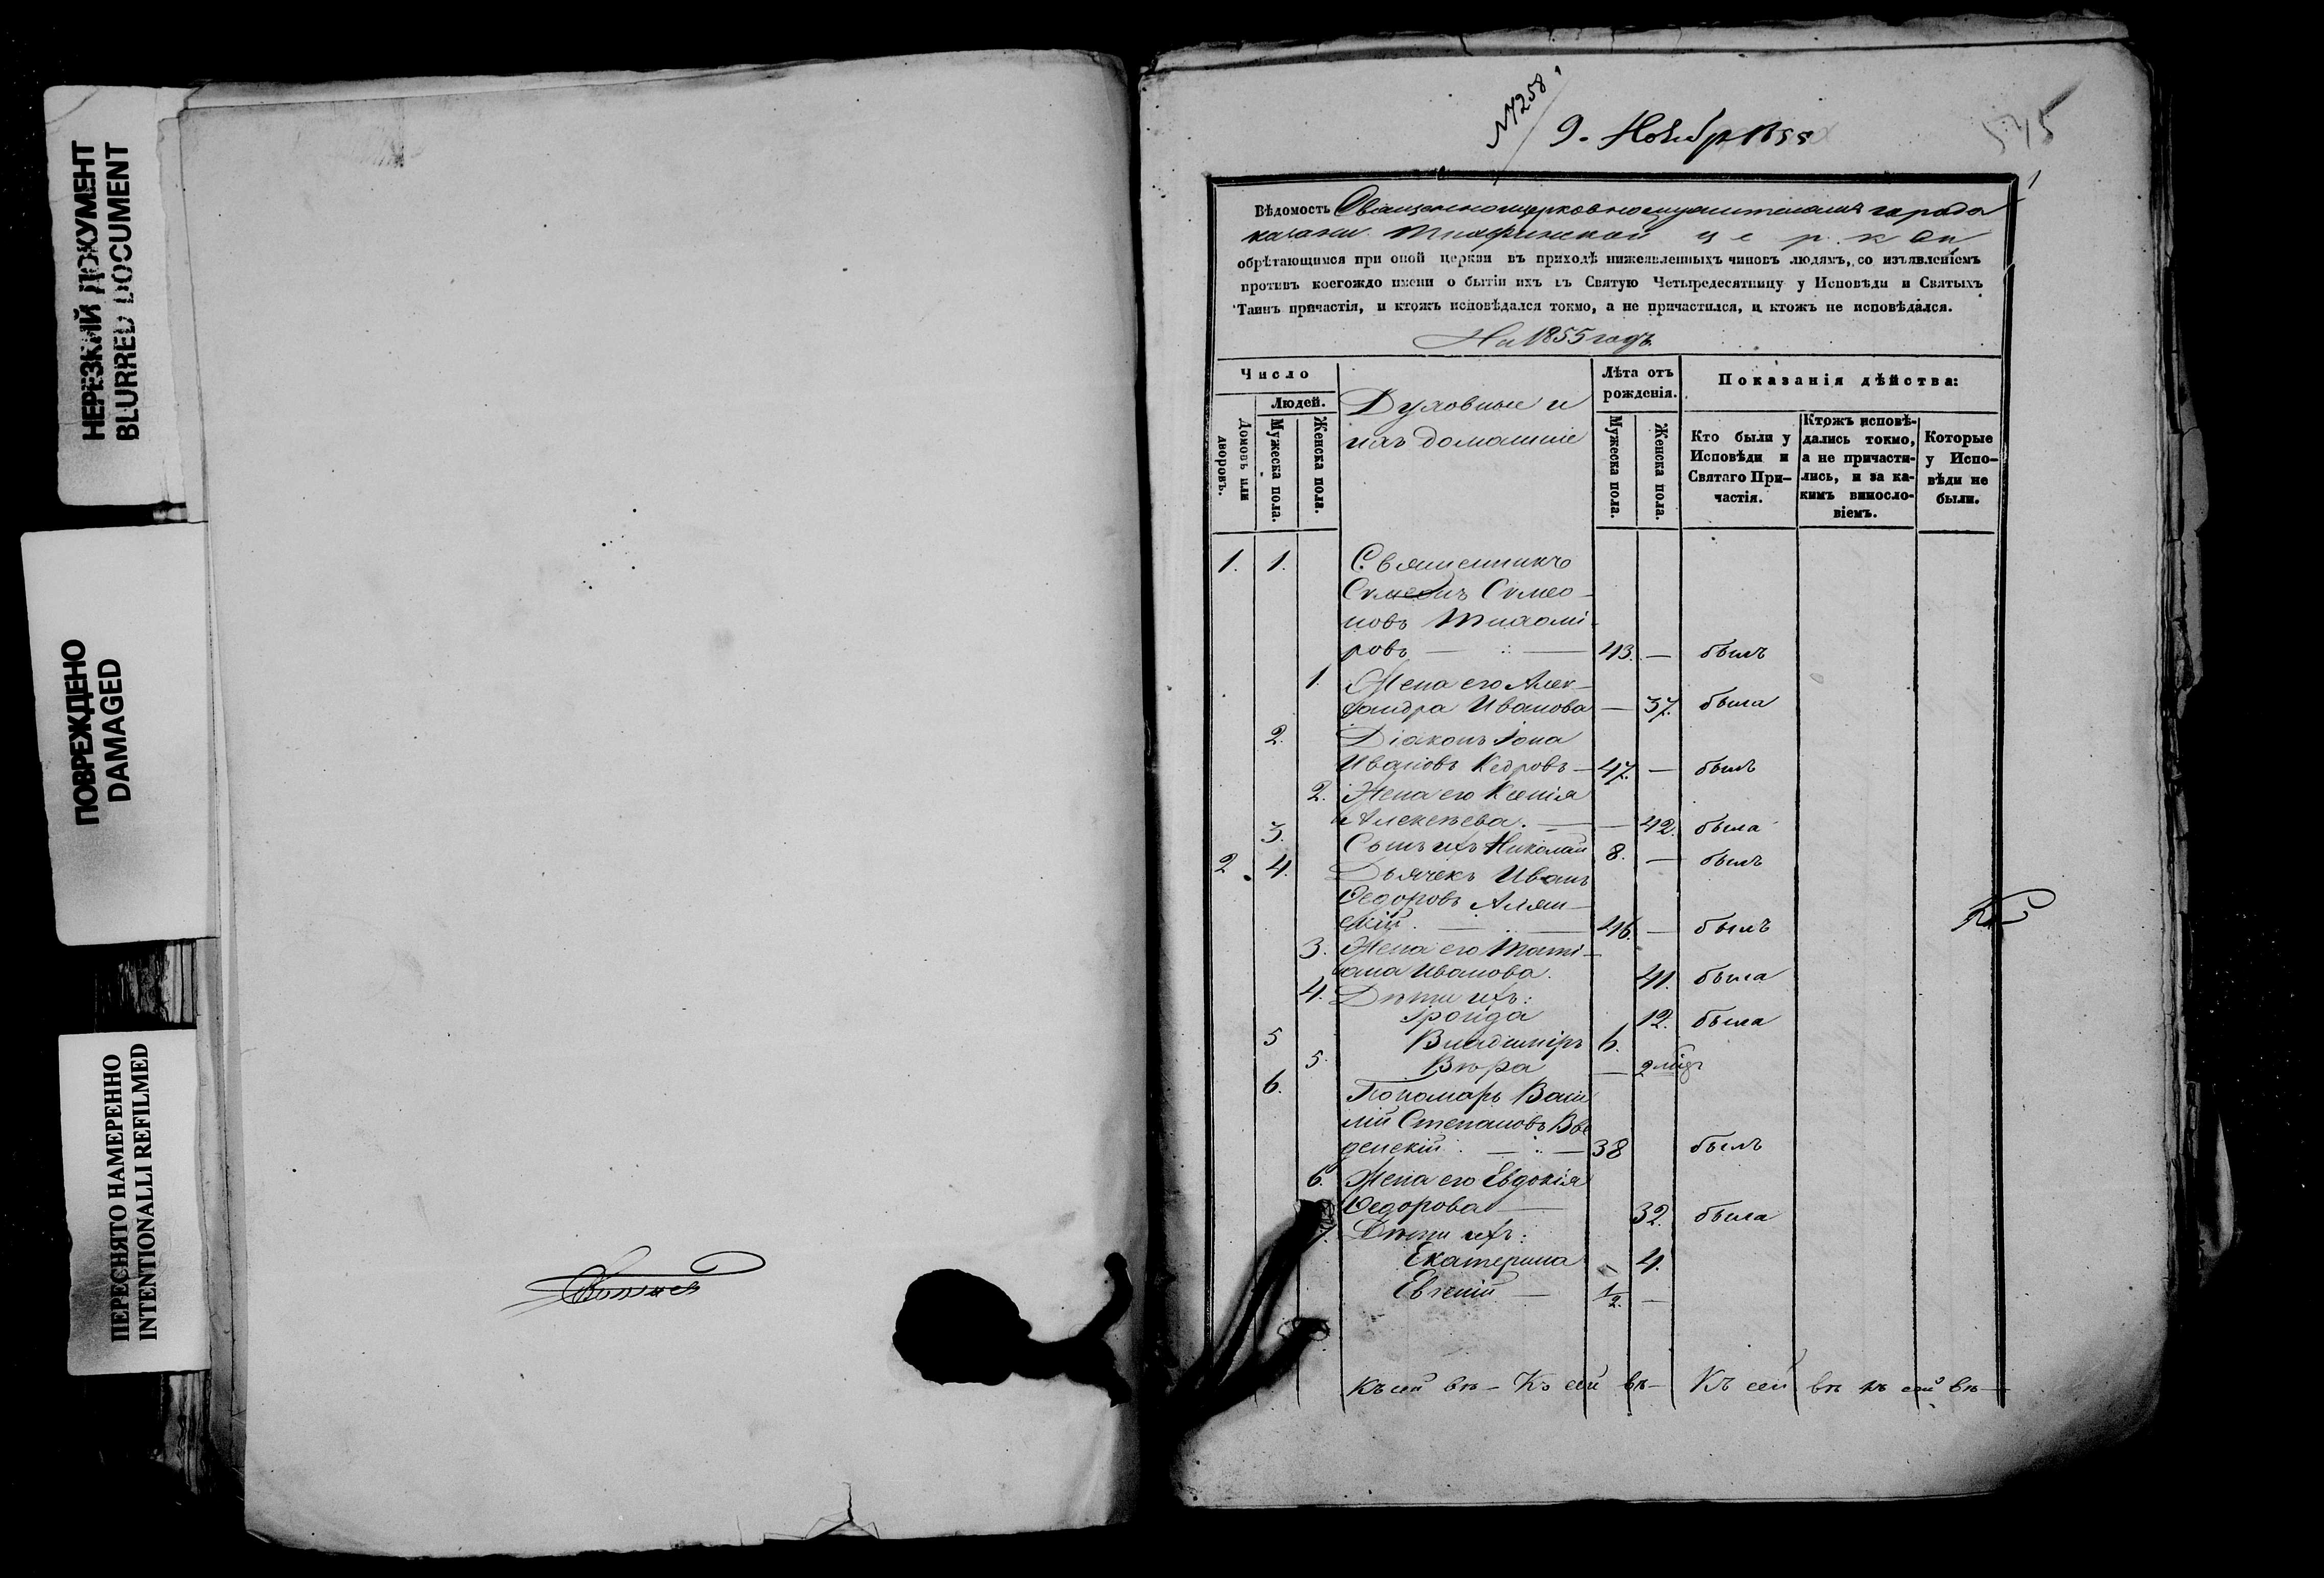 НЕРЕЗКИЙ ДОКУМЕНТ
BLURRED DOCUMENT
ПОВРЕЖДЕНО
DAMAGED
ПЕРЕСНЯТО НАМЕРЕННО
INTENTIONALLI REFILMED
№ 4258
9. Ноября 1855
545
1
Вѣдомость Священноцерковнослужителями города
Казани Тихвинской церкви
обрѣтающимся при оной церкви въ приходѣ нижеявленныхъ чиновъ людямъ, со изъявленіемъ
противъ коегождо имени о бытіи ихъ въ Святую Четыредесятницу у Исповѣди и Святыхъ
Таинъ причастія, и ктожъ исповѣдался токмо, а не причастился, и ктожъ не исповѣдался.
На 1855 годъ
Число
Людей.
Домовъ или дворовъ.
Мужеска пола.
Женска пола.
Духовные и
ихъ домашніе
Лѣта отъ
рожденія.
Мужеска пола.
Женска пола.
Показанія дѣйства:
Кто были у
Исповѣди и
Святаго При-
частія.
Ктожъ исповѣ-
дались токмо,
а не причасти-
лись, и за ка-
кимъ винносло-
віемъ.
Которые
у Испо-
вѣди не
были.
1. 1. Священникъ
Симеонъ Симео-
новъ Тихомі-
ровъ — 43. — былъ
1. Жена его Алек-
сандра Иванова — 37. была
2. Діаконъ Іона
Ивановъ Кедровъ — 47. — былъ
2. Жена его Ксенія
Алексѣева. — — 42. была
3. Сынъ ихъ Николай 8. — былъ
2. 4. Дьячекъ Иванъ
Ѳедоровъ
скій. — 46. — былъ
3. Жена его Таті-
ана Иванова. 41. была
4. Дѣти ихъ:
Ираида 12. была
5 Владиміръ 6.
5. Вѣра — 2
6. Пономарь Васи
лій Степановъ Вве
денскій. — 38 былъ
6. Жена его Евдокія
Ѳедорова — 32. была
7. Дѣти ихъ:
Екатерина — 4.
Евгеній — 1/2. —
Къ сей вѣ- Къ сей вѣ- Къ сей вѣ къ сей вѣ-